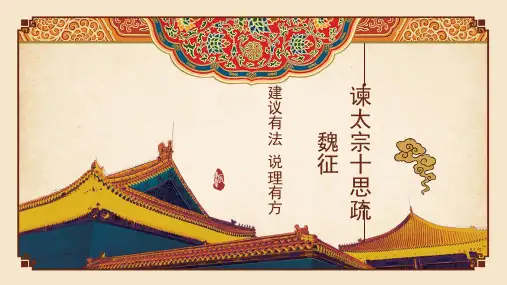 谏太宗十思疏
魏征
建议有法 说理有方